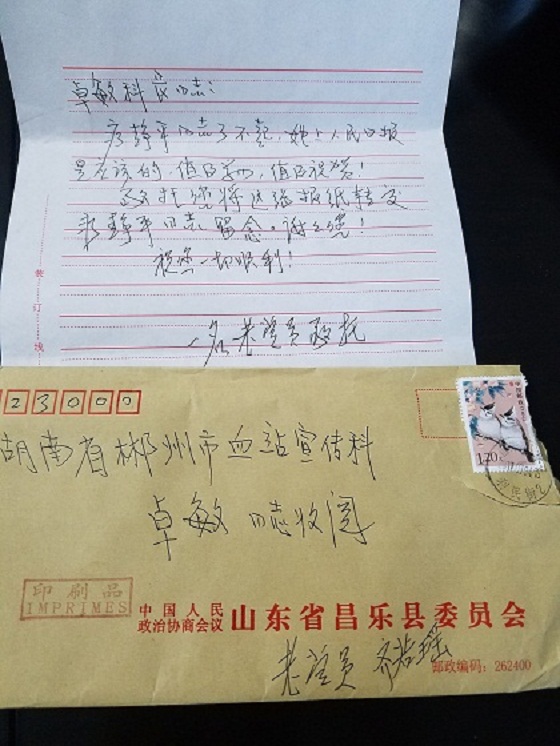 卓敏科长同志：
静平同志了不起，她上人民日报
是应该的，值得学习，值得祝贺！
敬托您将这张报纸转交
静平同志留念。谢谢您！
祝您一切顺利！
一名老党员敬托
装
订
线
23000
湖南省郴州市血站宣传科
卓敏 同志收阅
1.20
印刷品
IMPRIMES
中国人民
政治协商会议 山东省昌乐县委员会
老党员
邮政编码：262400